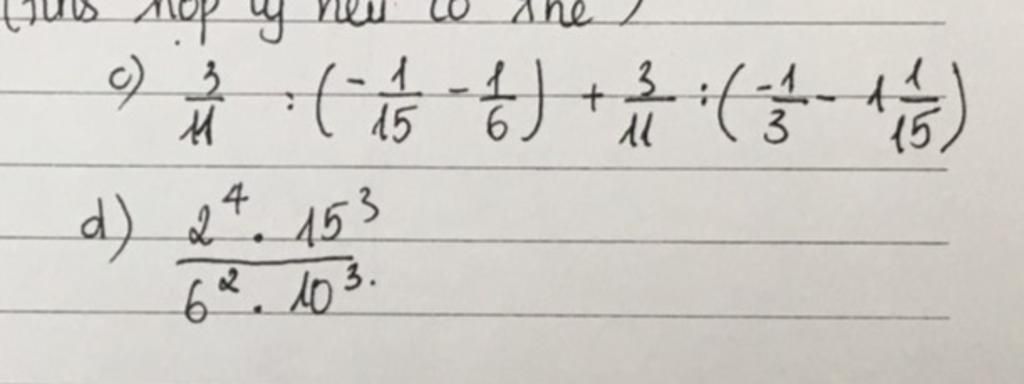 hợp lý nếu có thể)
c) 3/11 : (-1/15 - 1/6) + 3/11 : (-1/3 - 1 1/15)
d) 2⁴ . 15³ / 6² . 10³.